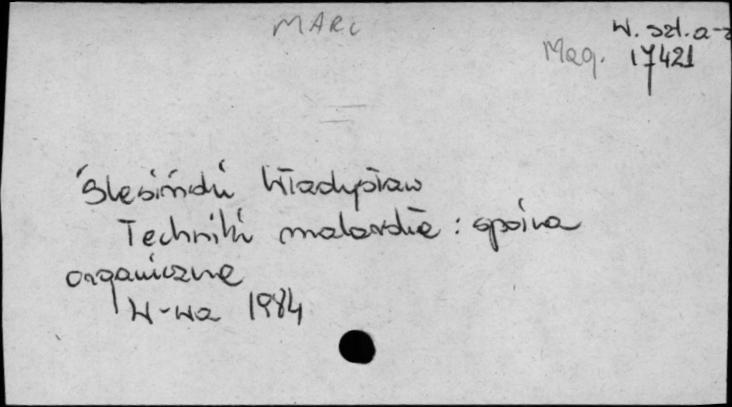 MARC
W. szt. a-z
Mag. 17421
Ślesiński Władysław
Techniki malarskie : spoiwa
organiczne
W-wa 1984